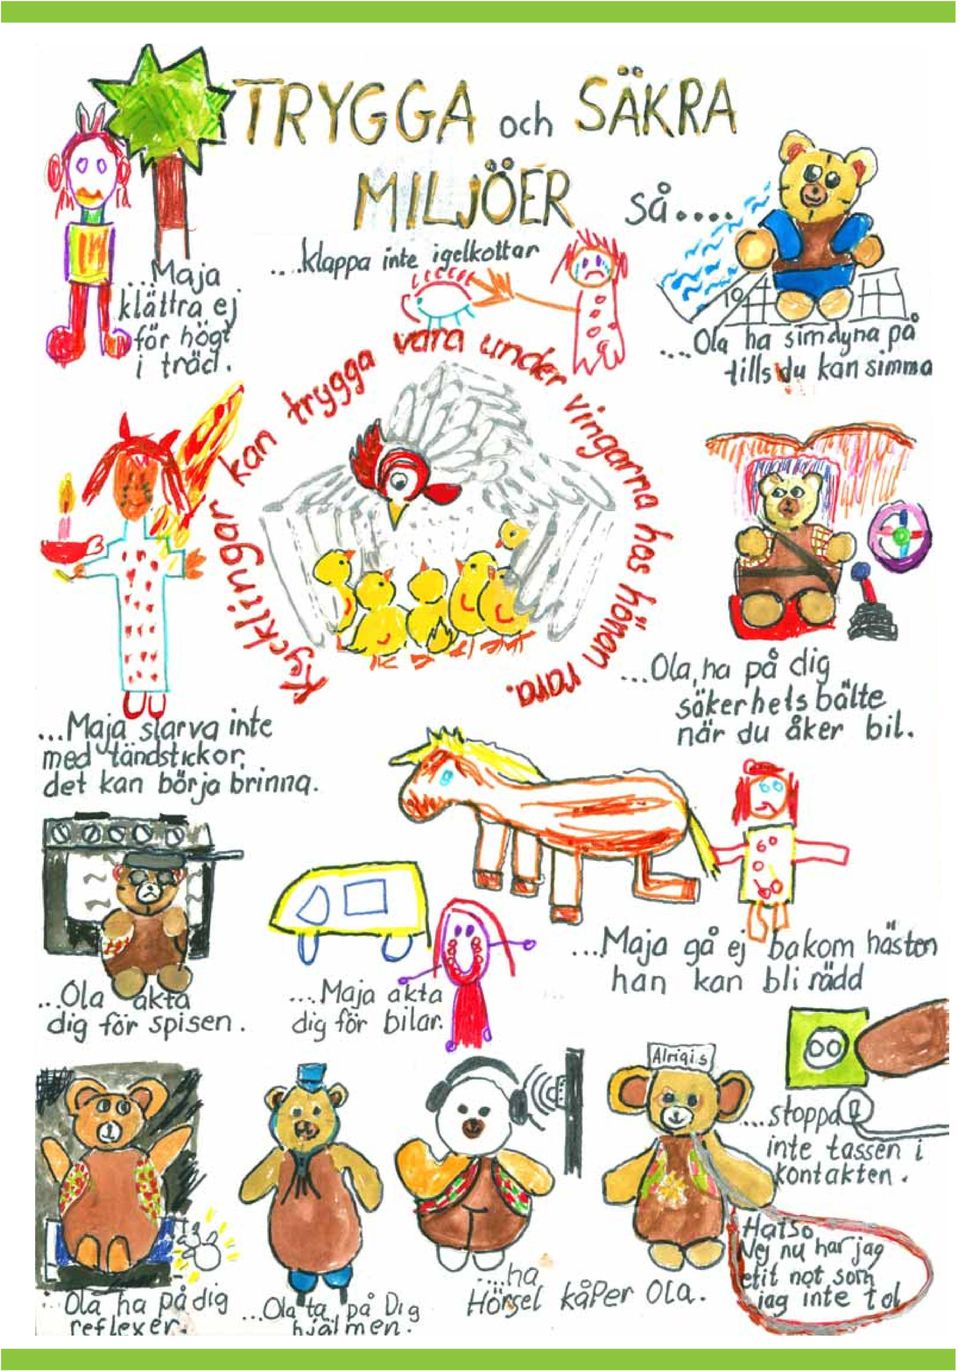 TRYGGA och SÄKRA
MILJÖER så....
...Maja
klättra ej
för högt
i träd.
....klappa inte igelkottar
...Ola ha simdyna på
tills du kan simma
10
Kycklingar kan trygga vara under vingarna hos hönan rara.
...Maja slarva inte
med tändstickor,
det kan börja brinna.
...Ola, ha på dig
säkerhetsbälte
när du åker bil.
...Ola akta
dig för spisen.
...Maja akta
dig för bilar.
...Maja gå ej bakom hästen
han kan bli rädd
....stoppa
inte tassen i
kontakten.
...Ola ha på dig
reflexer.
...Ola ta på Dig
hjälmen.
....ha
Hörsel kåper Ola.
Hatso
Nej nu har jag
etit not som
jag inte tol